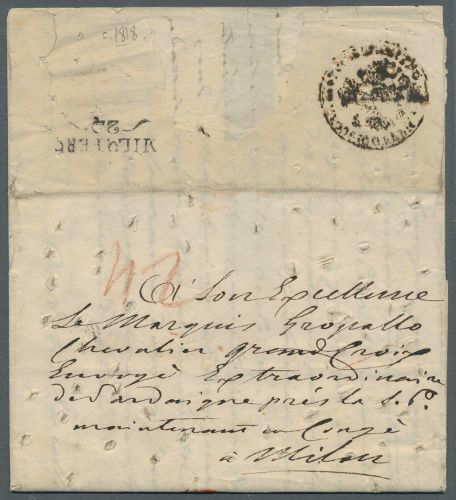 1818.
MILO FEBº
22
42
A Son Excellence
Le Marquis Gropallo
Chevalier grand Croix
Envoyè Extraordinaire
de Sardaigne près la S. Pe.
maintenant en Congè
à Milan